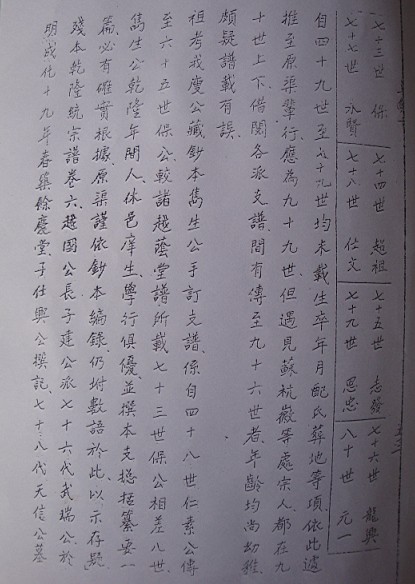 七十三世 保 七十四世 超祖 七十五世 志發 七十六世 龍興
七十七世 永賢 七十八世 仕文 七十九世 思忠 八十世 元一
自四十九世至七十九世均未載生卒年月配氏葬地等項、依此遞
推至原渠輩行、應為九十九世、但遇見蘇杭徽等處宗人、都在九
十世上下、借閱各派支譜間有傳至九十六世者、年齡均尚幼稚
頗疑譜載有誤、
祖考我慶公藏鈔本雋生公手訂支譜、係自四十八世仁素公傳
至六十五世保公、較諸越蔭堂譜所載七十三世保公相差八世、
雋生公乾隆年間人、休邑庠生、學行俱優、並撰本支總括纂要一
篇、必有確實根據、原渠謹依鈔本編錄、仍坿數語於此、以示存疑
殘本乾隆統宗譜卷六越國公長子建公派七十六代武瑞公於
明成化十九年春築餘慶堂、子仕興公撰記、七十八代天信公墓